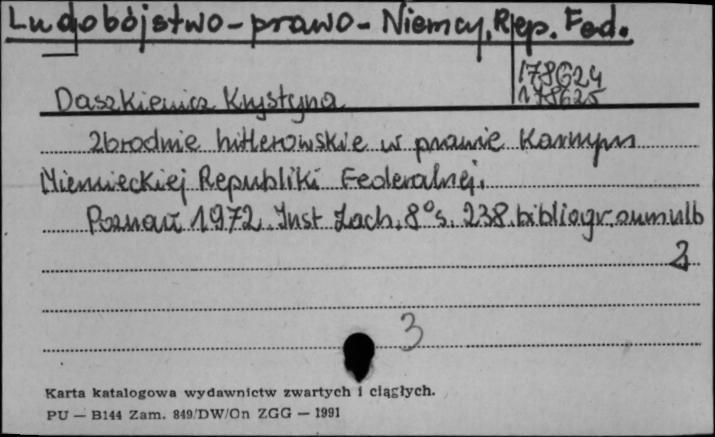 Ludobójstwo - prawo - Niemcy, Rep. Fed.
178624
178625
Daszkiewicz Krystyna
Zbrodnie hitlerowskie w prawie Karnym
Niemieckiej Republiki Federalnej.
Poznań 1972. Inst Zach. 8° s. 238. bibliogr.
2
3
Karta katalogowa wydawnictw zwartych i ciągłych.
PU — B144 Zam. 849/DW/On ZGG — 1991